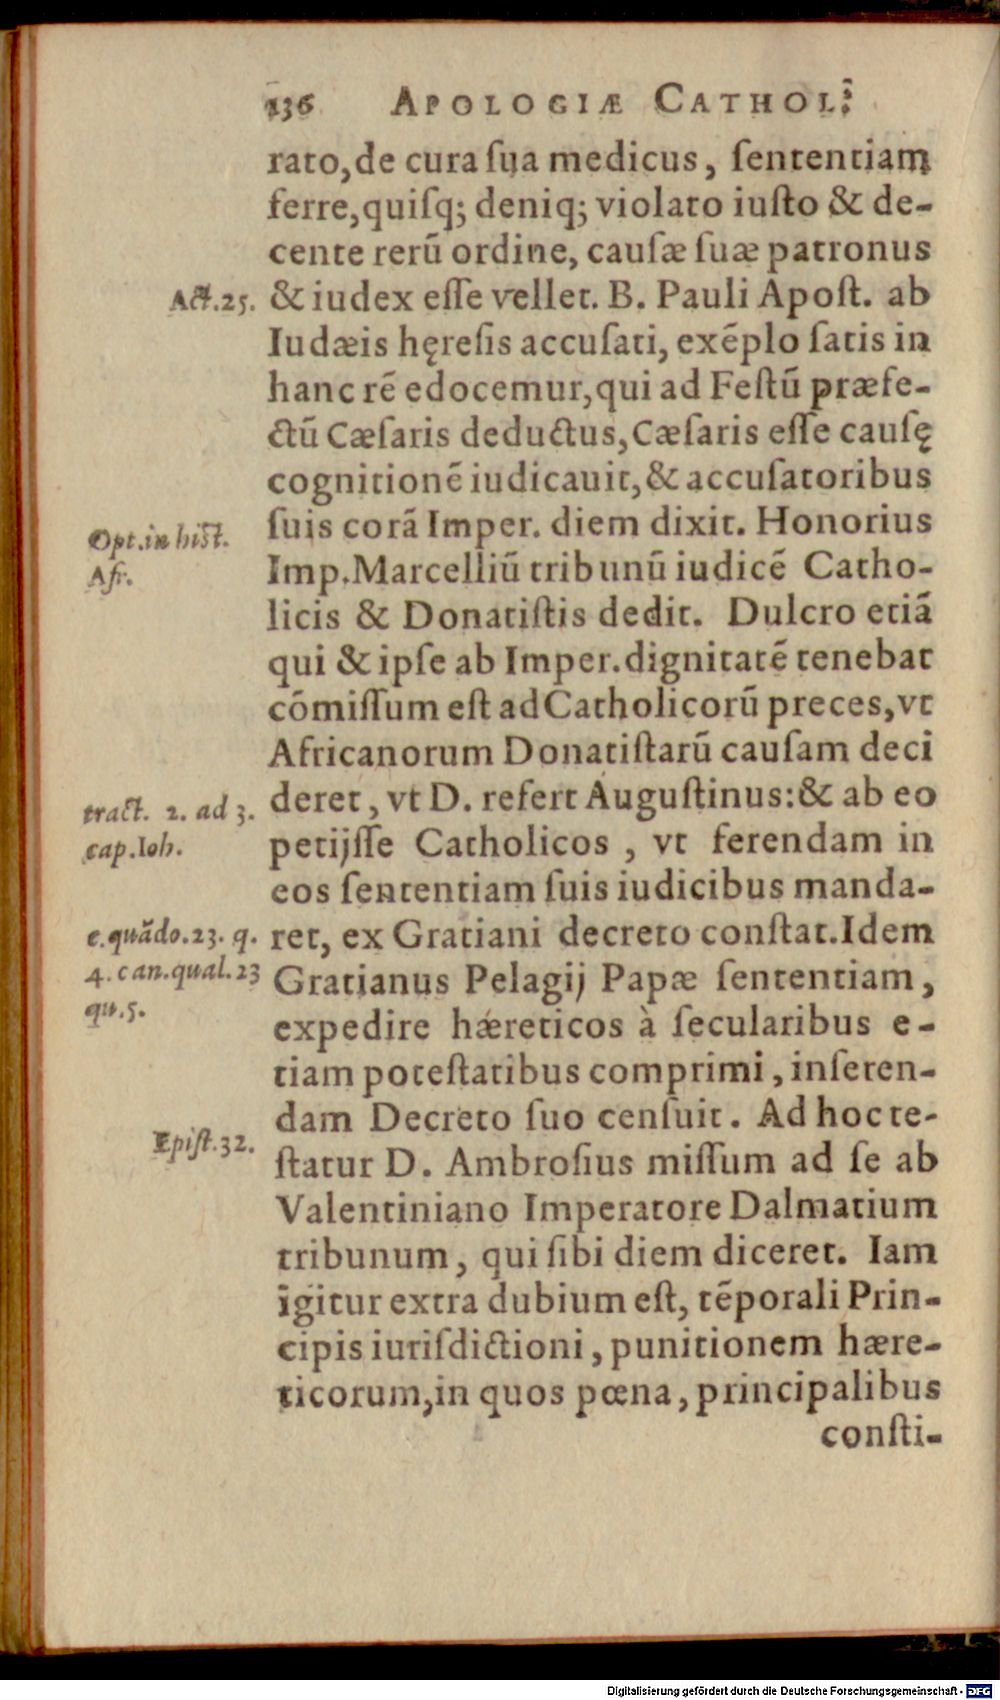 136 APOLOGIÆ CATHOL:
rato, de cura ſua medicus, ſententiam
ferre, quiſq; deniq; violato iuſto & de-
cente rerũ ordine, cauſæ ſuæ patronus
Act.25. & iudex eſſe vellet. B. Pauli Apoſt. ab
Iudæis hęreſis accuſati, exẽplo ſatis in
hanc rẽ edocemur, qui ad Feſtũ præfe-
ctũ Cæſaris deductus, Cæſaris eſſe cauſę
cognitionẽ iudicauit, & accuſatoribus
ſuis corã Imper. diem dixit. Honorius
Opt.in hiſt.
Afr.
Imp. Marcelliũ tribunũ iudicẽ Catho-
licis & Donatiſtis dedit. Dulcro etiã
qui & ipſe ab Imper. dignitatẽ tenebat
cõmiſſum eſt ad Catholicorũ preces, vt
Africanorum Donatiſtarũ cauſam deci
deret, vt D. refert Auguſtinus: & ab eo
tract. 2. ad 3.
cap. Ioh.
petijſſe Catholicos, vt ferendam in
eos ſententiam ſuis iudicibus manda-
ret, ex Gratiani decreto conſtat. Idem
e. quãdo. 23. q.
4. can. qual. 23
qu. 5.
Gratianus Pelagij Papæ ſententiam,
expedire hæreticos à ſecularibus e-
tiam poteſtatibus comprimi, inſeren-
dam Decreto ſuo cenſuit. Ad hoc te-
Epiſt.32.
ſtatur D. Ambroſius miſſum ad ſe ab
Valentiniano Imperatore Dalmatium
tribunum, qui ſibi diem diceret. Iam
igitur extra dubium eſt, tẽporali Prin-
cipis iuriſdictioni, punitionem hære-
ticorum, in quos pœna, principalibus
conſti-
Digitalisierung gefördert durch die Deutsche Forschungsgemeinschaft - DFG